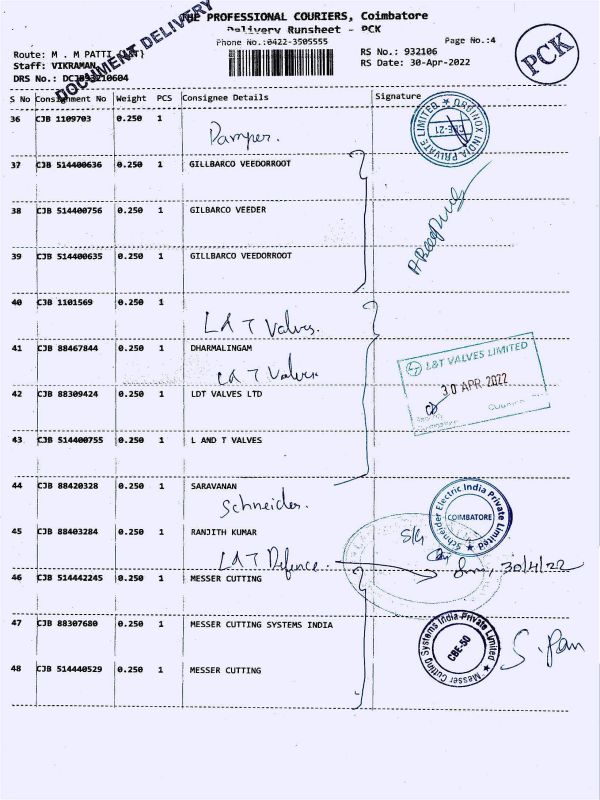 THE PROFESSIONAL COURIERS, Coimbatore
Delivery Runsheet - PCK
Phone No.:0422-3505555
Page No.:4
PCK
DOCUMENT DELIVERY
Route: M . M PATTI
Staff: VIKRAMAN
RS No.: 932106
RS Date: 30-Apr-2022
DRS No.: DCJB93210604
S No Consignment No Weight PCS Consignee Details Signature
36 CJB 1109703 0.250 1
INDIA PRIVATE LIMITED
CBE-21
37 CJB 514400636 0.250 1 GILLBARCO VEEDORROOT
38 CJB 514400756 0.250 1 GILBARCO VEEDER
39 CJB 514400635 0.250 1 GILLBARCO VEEDORROOT
40 CJB 1101569 0.250 1
L & T Valves.
41 CJB 88467844 0.250 1 DHARMALINGAM
L & T Valves
L&T VALVES LIMITED
30 APR 2022
42 CJB 88309424 0.250 1 LDT VALVES LTD
43 CJB 514400755 0.250 1 L AND T VALVES
44 CJB 88420328 0.250 1 SARAVANAN
Schneider.
Schneider Electric India Private Limited
COIMBATORE
45 CJB 88403284 0.250 1 RANJITH KUMAR
L&T Defence.
30/4/22
46 CJB 514442245 0.250 1 MESSER CUTTING
47 CJB 88307680 0.250 1 MESSER CUTTING SYSTEMS INDIA
Messer Cutting Systems India Private Limited
CBE-50
48 CJB 514440529 0.250 1 MESSER CUTTING